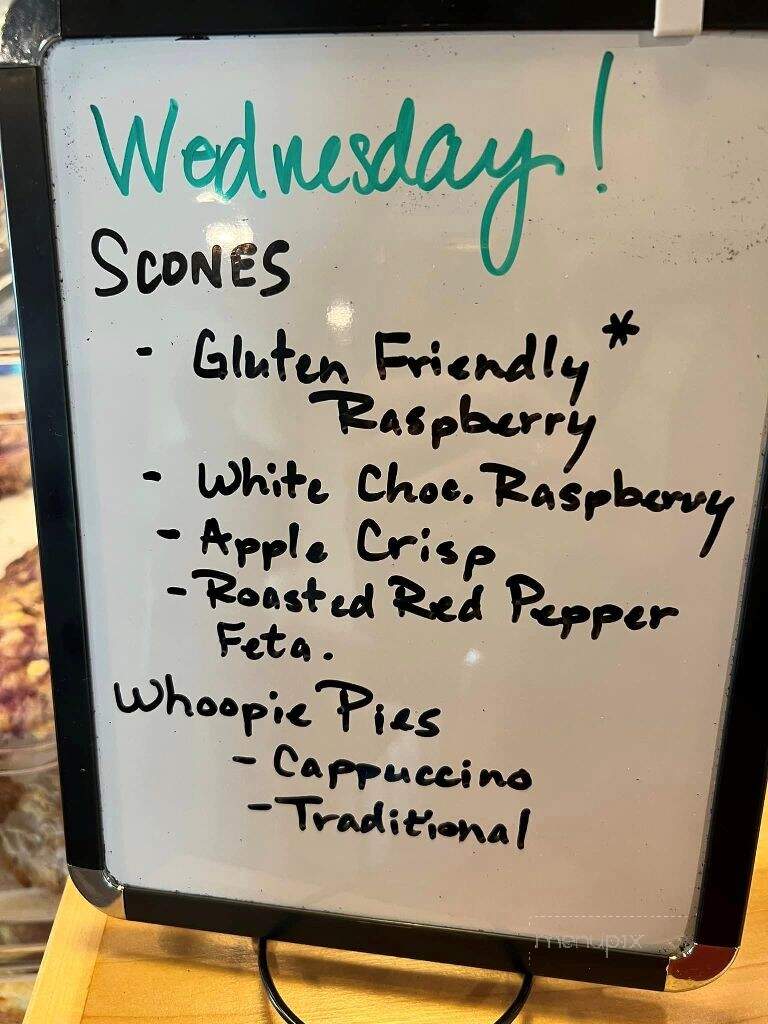 Wednesday!
SCONES
- Gluten Friendly*
Raspberry
- White Choc. Raspberry
- Apple Crisp
- Roasted Red Pepper
Feta.
Whoopie Pies
- Cappuccino
- Traditional
menupix